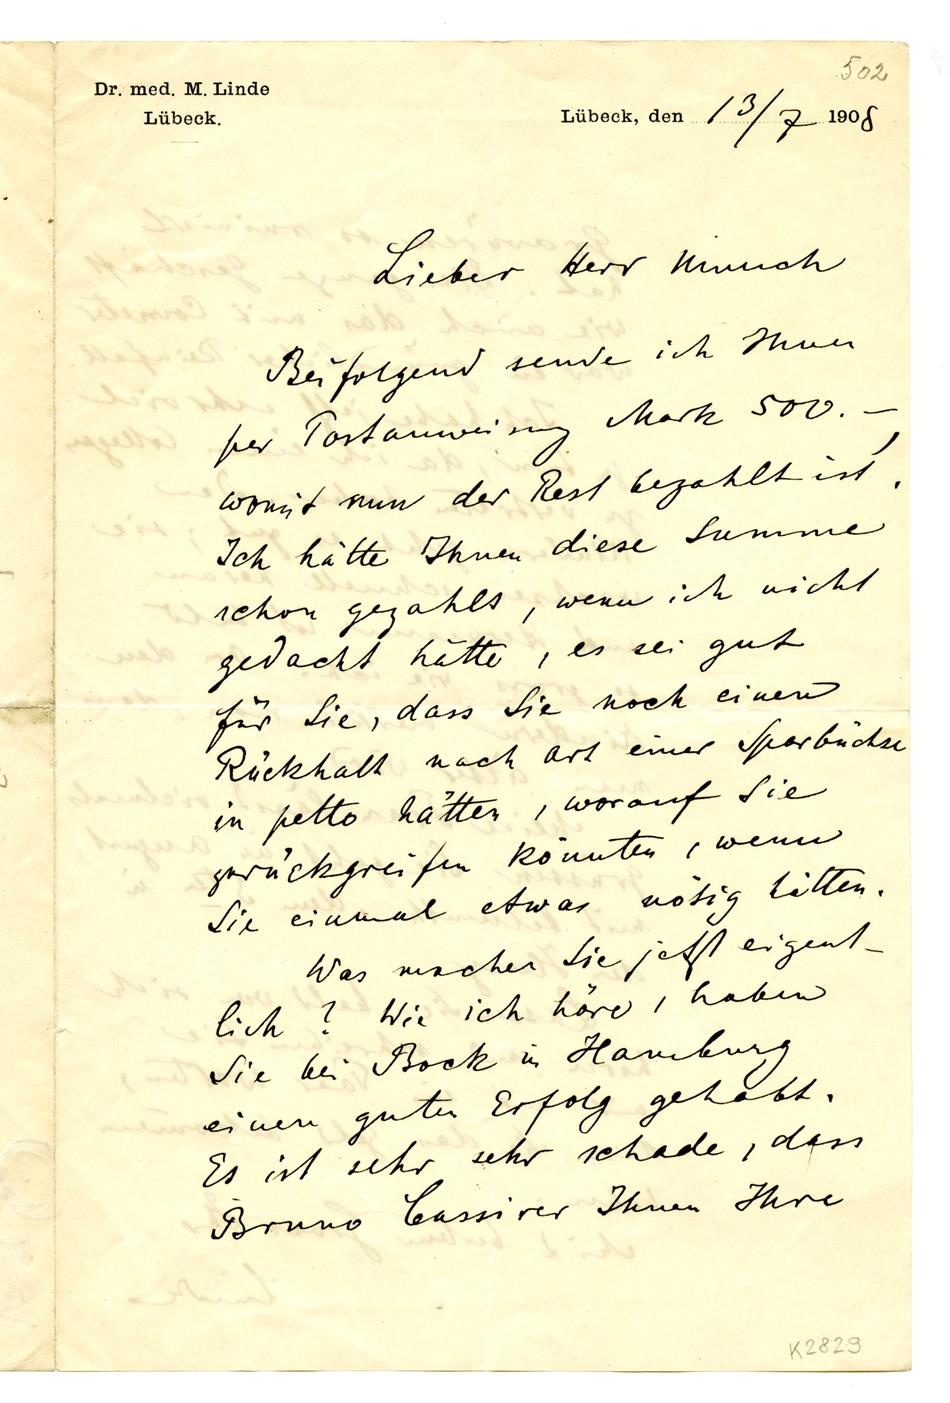 502
Dr. med. M. Linde
Lübeck.
Lübeck, den 13/7 1908
Lieber Herr Munch
Beifolgend sende ich Ihnen
per Postanweisung Mark 500.–,
womit nun der Rest bezahlt ist.
Ich hätte Ihnen diese Summe
schon gezahlt, wenn ich nicht
gedacht hätte, es sei gut
für Sie, dass Sie noch einen
Rückhalt nach Art einer Sparbüchse
in petto hätten, worauf Sie
zurückgreifen könnten, wenn
Sie einmal etwas nötig hätten.
Was machen Sie jetzt eigent-
lich? Wie ich höre, haben
Sie bei Bock in Hamburg
einen guten Erfolg gehabt.
Es ist sehr sehr schade, dass
Bruno Cassirer Ihnen Ihre
K2829